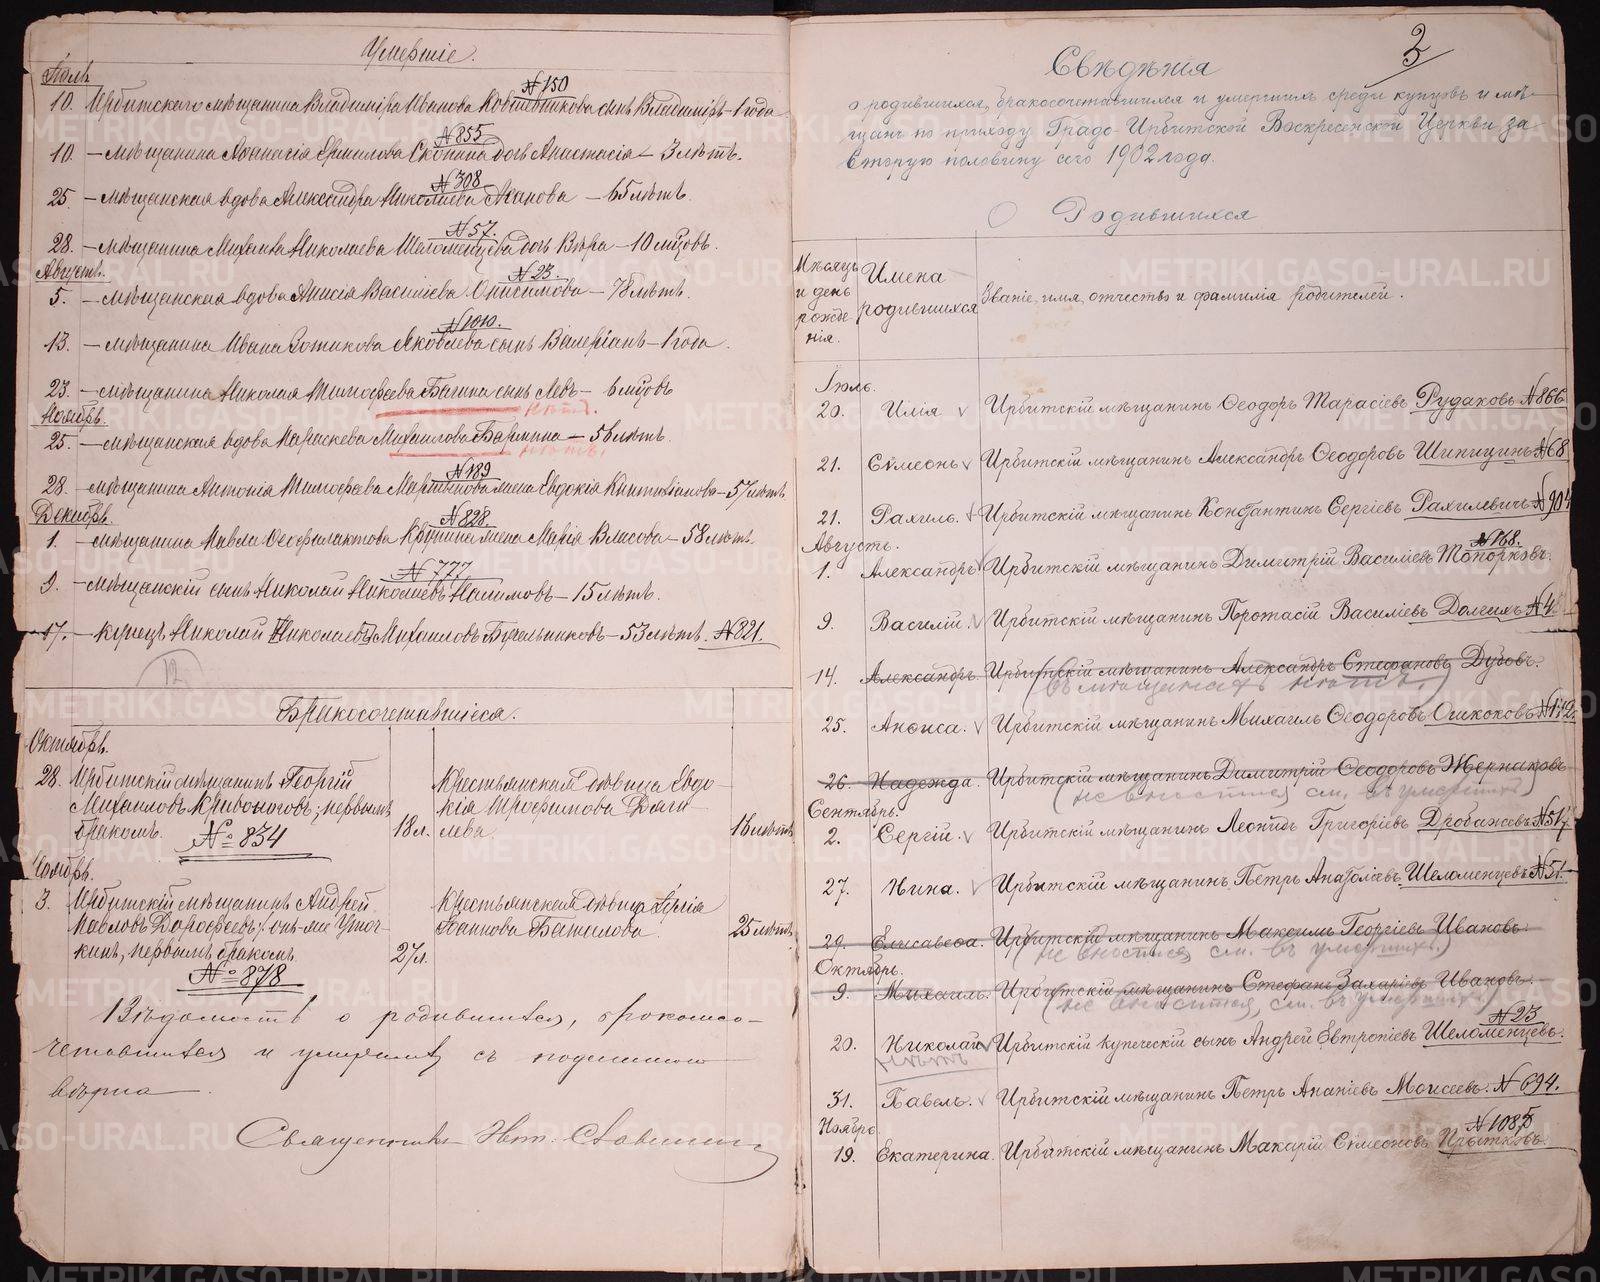 Умершіе.
Іюль
№ 150
10. Ирбитскаго мѣщанина Владиміра Иванова сынъ Владиміръ – 1 года.
№ 855
10. – мѣщанина Аѳанасія Ермилова Скопина дочь Анастасія – 3 лѣтъ.
№ 308
25. – мѣщанская вдова Александра Николаева Аганова – 65 лѣтъ.
№ 57.
28. – мѣщанина Михаила Николаева Шеломенцева дочь Вѣра – 10 мѣсцовъ.
Августъ.
№ 23.
5. – мѣщанская вдова Анисія Васильева Онисимова – 78 лѣтъ.
№ 1010.
13. – мѣщанина Ивана Зотикова Яковлева сынъ Валеріанъ – 1 года.
23. – мѣщанина Николая Тимофеева Багина сынъ Левъ – 6 мѣсцовъ
нѣтъ.
Ноябрь.
25. – мѣщанская вдова Параскева Михаилова Бармина – 56 лѣтъ.
нѣтъ.
№ 189
28. – мѣщанина Антонія Тимофеева Мартынова жена Евдокія – 57 лѣтъ
Декабрь.
№ 828.
1. – мѣщанина Павла Ѳеофилактова жена Марія Власова – 58 лѣтъ.
№ 777
9. – мѣщанскій сынъ Николай Николаевъ Налимовъ – 15 лѣтъ.
17. – купецъ Николай Николаевъ Михаиловъ – 53 лѣтъ. № 821.
12
Бракосочетавшіеся.
Октябрь.
28. Ирбитскій мѣщанинъ Георгій
Михаиловъ Кривоноговъ, первымъ
бракомъ. № 834
18 л.
Крестьянская дѣвица Евдо-
кія Трофимова
лева
18 лѣтъ
Ноябрь.
3. Ирбитскій мѣщанинъ Андрей
Павловъ Дорофеевъ, онъ-же
первымъ бракомъ.
№ 878
27 л.
Крестьянская дѣвица
25 лѣтъ.
Вѣдомость о родившихся, бракосо-
четавшихся и умершихъ съ подлинною
вѣрна
Священникъ
2
Свѣдѣнія
о родившихся, бракосочетавшихся и умершихъ среди купцовъ и мѣ-
щанъ по приходу Градо-Ирбитской Воскресенской Церкви за
вторую половину сего 1902 года.
Родившихся
Мѣсяцъ и день рожденія.
Имена родившихся
Званіе, имя, отчество и фамилія родителей.
Іюль.
20. Илія Ирбитскій мѣщанинъ Ѳеодоръ Тарасіевъ Рудаковъ № 866
21. Сѵмеонъ Ирбитскій мѣщанинъ Александръ Ѳеодоровъ Шипицинъ № 68
21. Рахиль. Ирбитскій мѣщанинъ Константинъ Сергіевъ Рахилевичъ № 904
Августъ.
№ 168.
1. Александръ Ирбитскій мѣщанинъ Димитрій Василіевъ Топорковъ.
9. Василій. Ирбитскій мѣщанинъ Протасій Василіевъ Долгихъ № 4
14. Александръ. Ирбитскій мѣщанинъ Александръ Стефановъ Дубовъ.
(въ мѣщанахъ нѣтъ.)
25. Анѳиса. Ирбитскій мѣщанинъ Михаилъ Ѳеодоровъ Ошкоковъ № 112.
26. Надежда. Ирбитскій мѣщанинъ Димитрій Ѳеодоровъ Жернаковъ
(не вносится см. въ умершихъ)
Сентябрь.
2. Сергій. Ирбитскій мѣщанинъ Леонидъ Григоріевъ Дробажевъ № 517
27. Нина. Ирбитскій мѣщанинъ Петръ Анатоліевъ Шеломенцевъ № 51.
29. Елисавеѳа. Ирбитскій мѣщанинъ Максимъ Георгіевъ Ивановъ.
(не вносится см. въ умершихъ.)
Октябрь.
9. Михаилъ. Ирбитскій мѣщанинъ Стефанъ Захаріевъ Ивановъ.
(не вносится, см. въ умершихъ.)
№ 23
20. Николай Ирбитскій купеческій сынъ Андрей Евтропіевъ Шеломенцевъ.
нѣтъ
31. Павелъ. Ирбитскій мѣщанинъ Петръ Ананіевъ Моисеевъ. № 694.
Ноябрь
№ 1085
19. Екатерина. Ирбитскій мѣщанинъ Макарій Сѵмеоновъ Прытковъ.
METRIKI.GASO-URAL.RU